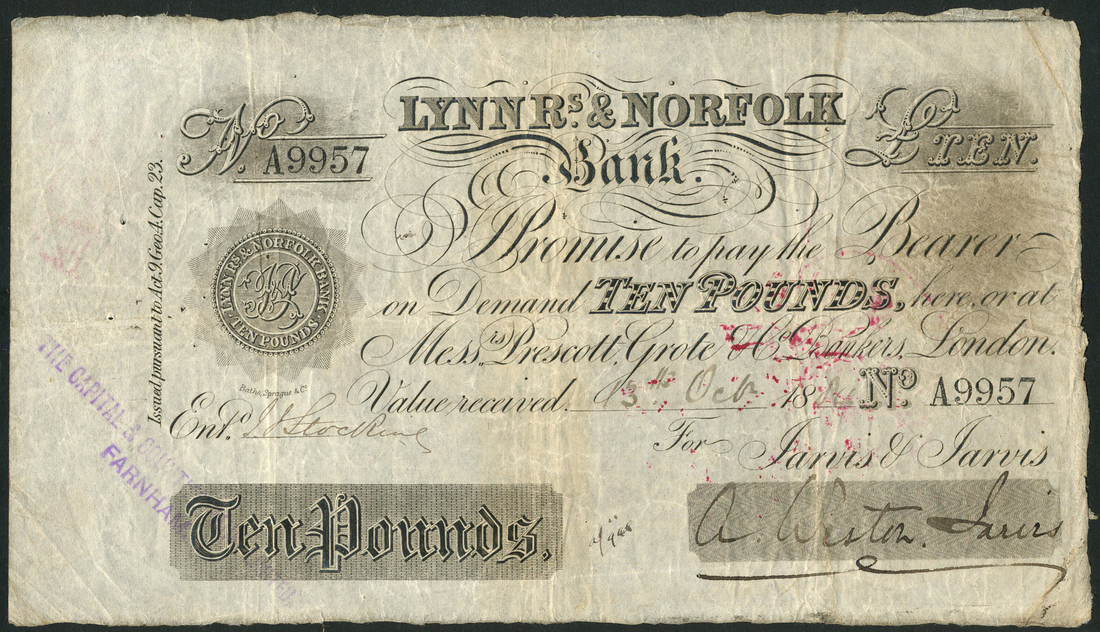 LYNN Rs & NORFOLK
Bank.
No. A9957
£TEN.
I Promise to pay the Bearer
on Demand TEN POUNDS, here, or at
Messrs Prescott, Grote & Co. Bankers, London.
Value received. 13th Oct 18 No. A9957
For Jarvis & Jarvis
Issued pursuant to Act 9. Geo. 4. Cap. 23.
LYNN Rs & NORFOLK BANK
TEN POUNDS
Batho, Sprague & Co.
Entd. Stocking
Ten Pounds.
A. Weston Jarvis
THE CAPITAL &
FARNHAM